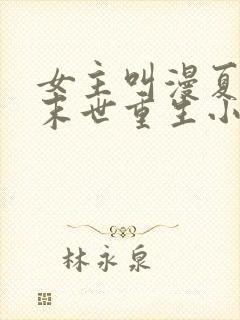 女主叫漫夏
末世重生小
林永泉